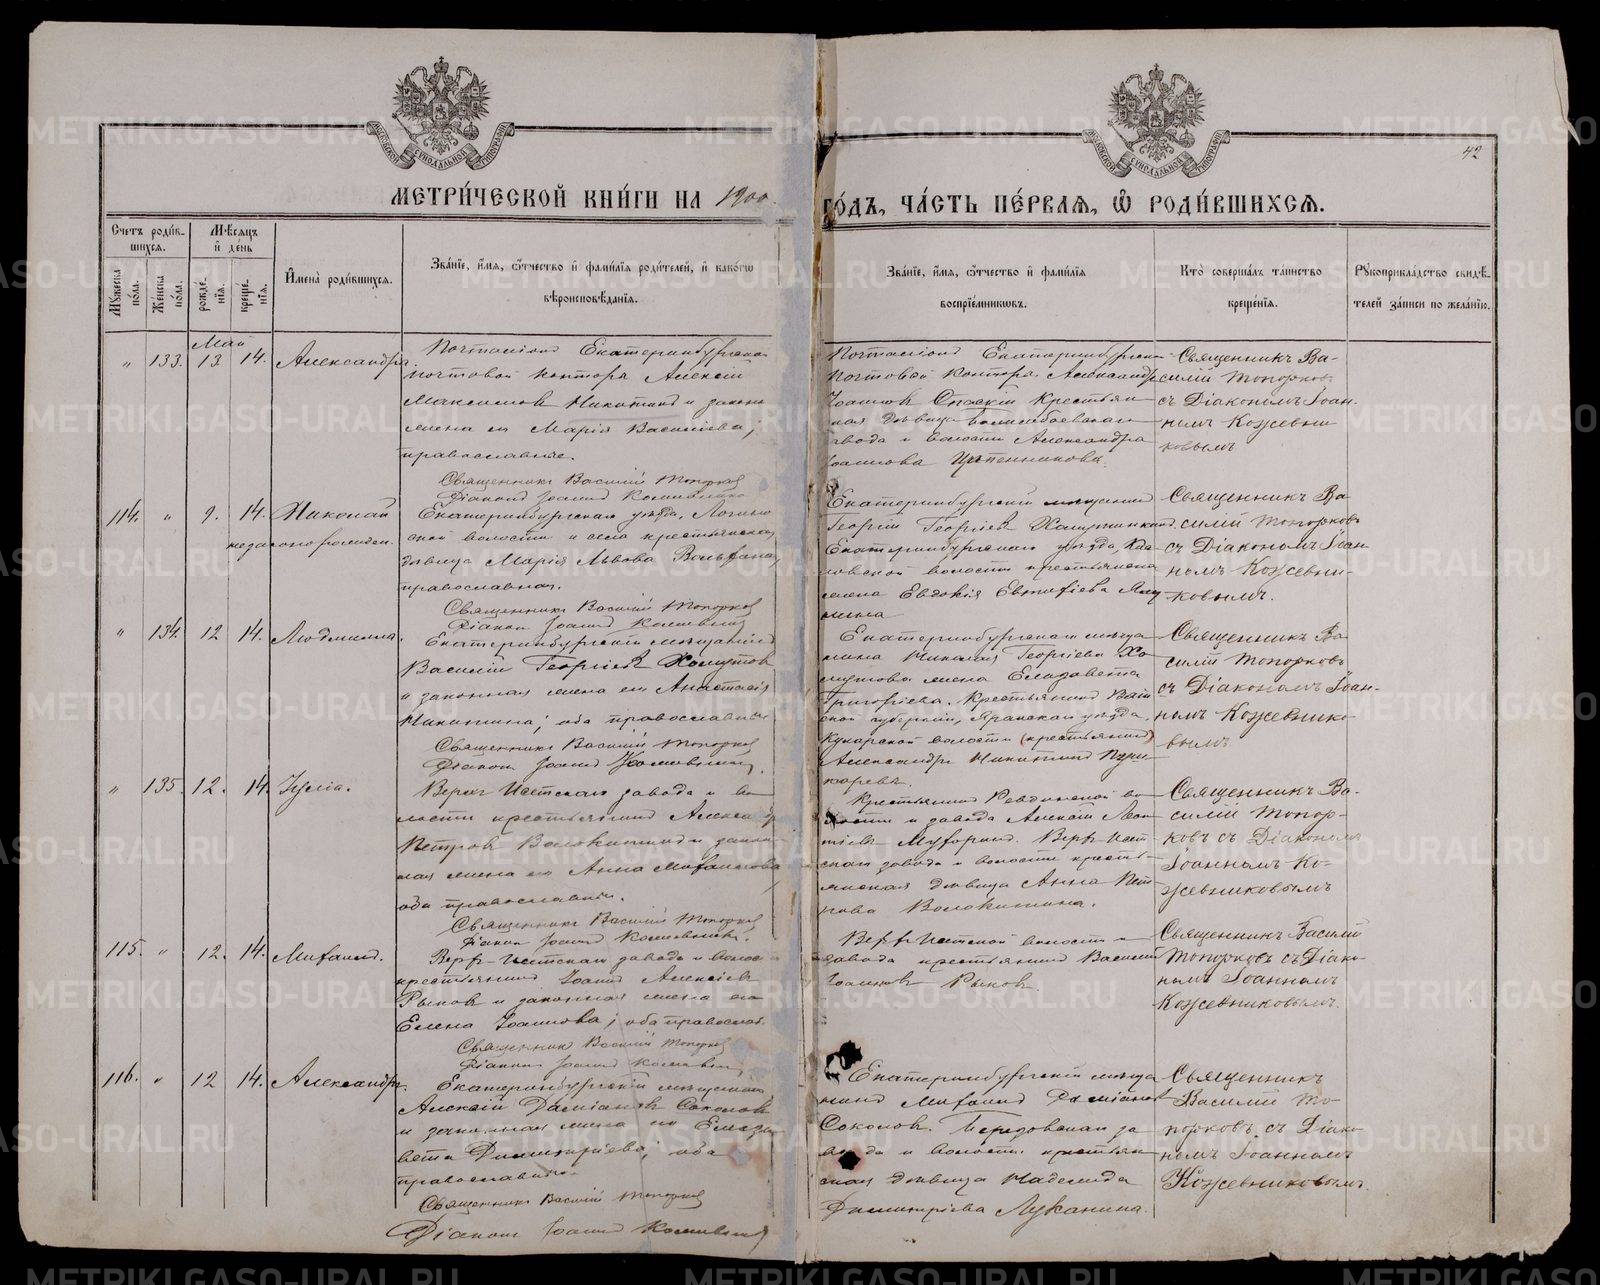 МОСКОВСКОЙ СѴНОДАЛЬНОЙ ТИПОГРАФІИ
МОСКОВСКОЙ СѴНОДАЛЬНОЙ ТИПОГРАФІИ
42
МЕТРИ́ЧЕСКОЙ КНИ́ГИ НА 1900 ГО́ДЪ, ЧА́СТЬ ПЕ́РВАЯ, Ѡ РОДИ́ВШИХСЯ.
Счетъ роди́в-
шихся.
Мѣсяцъ
и де́нь
Мужеска по́ла.
Же́нска по́ла.
рожде́-
нія.
креще́-
нія.
Имена̀ роди́вшихся.
Зва́ніе, имя, о́тчество и фами́лія роди́телей, и како́гѡ
вѣроисповѣ́данія.
Зва́ніе, имя, о́тчество и фами́лія
воспріе́мниковъ.
Кто̀ соверша́лъ та́инство
креще́нія.
Рукоприкла́дство свидѣ́-
телей за́писи по жела́нію.
Май
" 133. 13 14. Александра.
Почталіонъ Екатеринбургской
почтовой конторы Алексій
Максимовъ Никитинъ и закон.
жена его Марія Васильева;
православные.
Священникъ Василій Топорковъ
Діаконъ Іоаннъ Кожевниковъ
Почталіонъ Екатеринбургск.
почтовой конторы Александръ
Іоанновъ Спасскій Крестьян-
ская дѣвица
завода и волости Александра
Іоаннова
Священникъ Ва-
силій Топорковъ
съ Діакономъ Іоан-
номъ Кожевни-
ковымъ
114. " 9. 14. Николай
незаконнорожден.
Екатеринбургскаго уѣзда,
ской волости и села крестьянская
дѣвица Марія Львова
православная.
Священникъ Василій Топорковъ
Діаконъ Іоаннъ Кожевниковъ
Екатеринбургскій мѣщанинъ
Георгій Георгіевъ
Екатеринбургскаго уѣзда,
волости крестьянина
жена Евдокія Евтифіева
Священникъ Ва-
силій Топорковъ
съ Діакономъ Іоан-
номъ Кожевни-
ковымъ.
" 134. 12 14. Людмилла.
Екатеринбургскій мѣщанинъ
Василій Георгіевъ Хомутовъ
и законная жена его Анастасія
Никитина; оба православные
Священникъ Василій Топорковъ
Діаконъ Іоаннъ Кожевниковъ.
Екатеринбургскаго мѣща-
нина Николая Георгіева Хо-
мутова жена Елизавета
Григорьева. Крестьянинъ Вят-
ской губерніи, Яранскаго уѣзда,
Кукарской волости (крестьянинъ)
Александръ Никитинъ
Священникъ Ва-
силій Топорковъ
съ Діакономъ Іоан-
номъ Кожевнико-
вымъ
" 135. 12. 14. Іулія.
Верхъ Исетскаго завода и во-
лости крестьянинъ Александръ
Петровъ Волокитинъ и закон-
ная жена его Анна Михайлова,
оба православные.
Священникъ Василій Топорковъ
Діаконъ Іоаннъ Кожевниковъ.
Крестьянинъ Ревдинской во-
лости и завода Алексій
Верхъ-Исет-
скаго завода и волости кресть-
янская дѣвица Анна Пет-
рова Волокитина.
Священникъ Ва-
силій Топор-
ковъ съ Діакономъ
Іоанномъ Ко-
жевниковымъ
115. " 12. 14. Михаилъ.
Верх-Исетскаго завода и волости
крестьянинъ Іоаннъ Алексіевъ
Рыковъ и законная жена его
Елена Іоаннова; оба православ.
Священникъ Василій Топорковъ
Діаконъ Іоаннъ Кожевниковъ
Верх-Исетской волости и
завода крестьянинъ Василій
Іоанновъ Рыковъ.
Священникъ Василій
Топорковъ съ Діако-
номъ Іоанномъ
Кожевниковымъ.
116. " 12 14. Александръ.
Екатеринбургскій мѣщанинъ
Алексій Даміановъ Соколовъ
и законная жена его Елиза-
вета Димитріева; оба
православные
Священникъ Василій Топорковъ
Діаконъ Іоаннъ Кожевниковъ
Екатеринбургскій мѣща-
нинъ Михаилъ Даміановъ
Соколовъ. за-
вода и волости крестьян-
ская дѣвица Надежда
Димитріева Луканина.
Священникъ
Василій То-
порковъ съ Діако-
номъ Іоанномъ
Кожевниковымъ.
METRIKI.GASO-URAL.RU